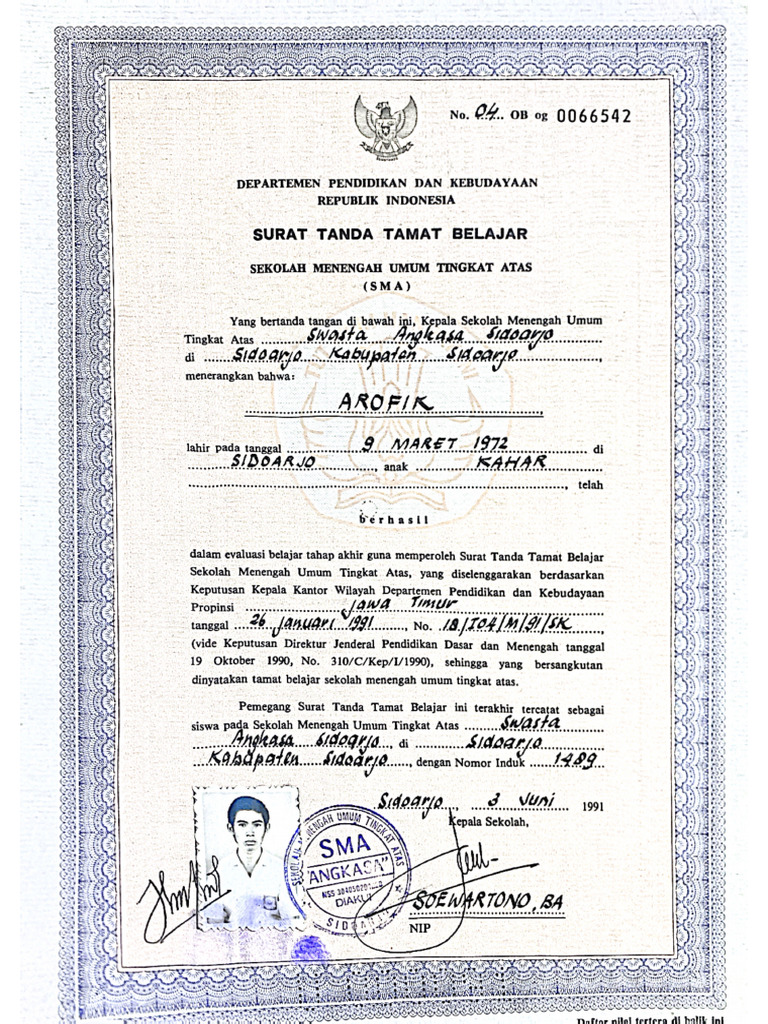 No. 04.. OB og 0066542
DEPARTEMEN PENDIDIKAN DAN KEBUDAYAAN
REPUBLIK INDONESIA
SURAT TANDA TAMAT BELAJAR
SEKOLAH MENENGAH UMUM TINGKAT ATAS
(SMA)
Yang bertanda tangan di bawah ini, Kepala Sekolah Menengah Umum
Tingkat Atas Swasta Angkasa Sidoarjo
di Sidoarjo Kabupaten Sidoarjo,
menerangkan bahwa:
AROFIK
lahir pada tanggal 9 MARET 1972 di
SIDOARJO, anak KAHAR
, telah
berhasil
dalam evaluasi belajar tahap akhir guna memperoleh Surat Tanda Tamat Belajar
Sekolah Menengah Umum Tingkat Atas, yang diselenggarakan berdasarkan
Keputusan Kepala Kantor Wilayah Departemen Pendidikan dan Kebudayaan
Propinsi Jawa Timur
tanggal 26 Januari 1991, No. 18/I04/M/91/SK,
(vide Keputusan Direktur Jenderal Pendidikan Dasar dan Menengah tanggal
19 Oktober 1990, No. 310/C/Kep/I/1990), sehingga yang bersangkutan
dinyatakan tamat belajar sekolah menengah umum tingkat atas.
Pemegang Surat Tanda Tamat Belajar ini terakhir tercatat sebagai
siswa pada Sekolah Menengah Umum Tingkat Atas Swasta
Angkasa Sidoarjo, di Sidoarjo
Kabupaten Sidoarjo, dengan Nomor Induk 1489
Sidoarjo, 3 Juni 1991
Kepala Sekolah,
MENENGAH UMUM TINGKAT ATAS
SMA
"ANGKASA"
NSS
DIAKUI
SOEWARTONO, BA
NIP
Daftar nilai tertera di balik ini